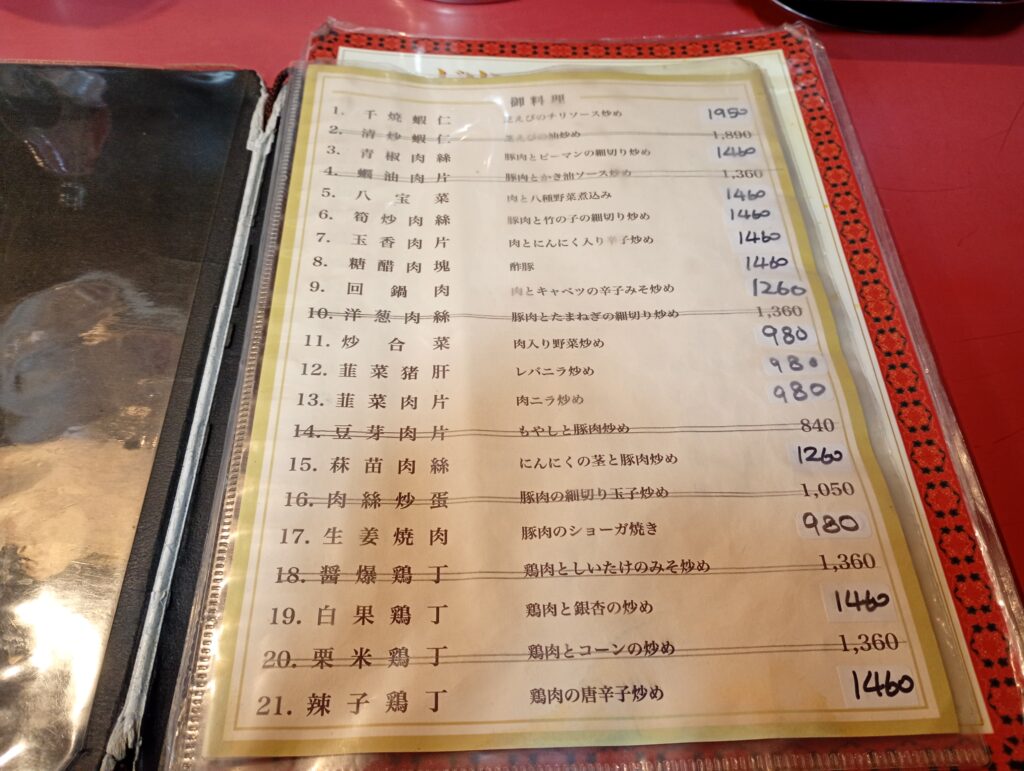 御料理
1. 干燒蝦仁 芝えびのチリソース炒め 1950
2. 清炒蝦仁 芝えびの油炒め 1,890
3. 青椒肉絲 豚肉とピーマンの細切り炒め 1460
4. 蠣油肉片 豚肉とかき油ソース炒め 1,360
5. 八宝菜 肉と八種野菜煮込み 1460
6. 筍炒肉絲 豚肉と竹の子の細切り炒め 1460
7. 玉香肉片 肉とにんにく入り辛子炒め 1460
8. 糖醋肉塊 酢豚 1460
9. 回鍋肉 肉とキャベツの辛子みそ炒め 1260
10. 洋葱肉絲 豚肉とたまねぎの細切り炒め 1,360
11. 炒合菜 肉入り野菜炒め 980
12. 韮菜猪肝 レバニラ炒め 980
13. 韮菜肉片 肉ニラ炒め 980
14. 豆芽肉片 もやしと豚肉炒め 840
15. 蒜苗肉絲 にんにくの茎と豚肉炒め 1260
16. 肉絲炒蛋 豚肉の細切り玉子炒め 1,050
17. 生姜焼肉 豚肉のショーガ焼き 980
18. 醤爆鶏丁 鶏肉としいたけのみそ炒め 1,360
19. 白果鶏丁 鶏肉と銀杏の炒め 1460
20. 栗米鶏丁 鶏肉とコーンの炒め 1,360
21. 辣子鶏丁 鶏肉の唐辛子炒め 1460